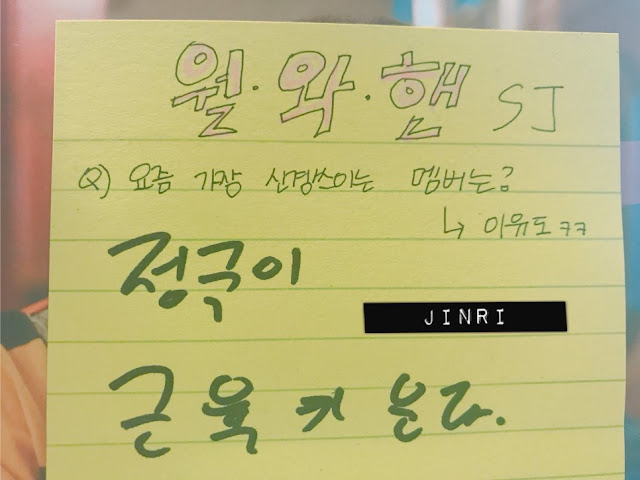 월·와·햄 SJ
Q) 요즘 가장 신경쓰이는 멤버는?
↳ 이유도 ㅋㅋ
정국이
JINRI
근육 키운다.